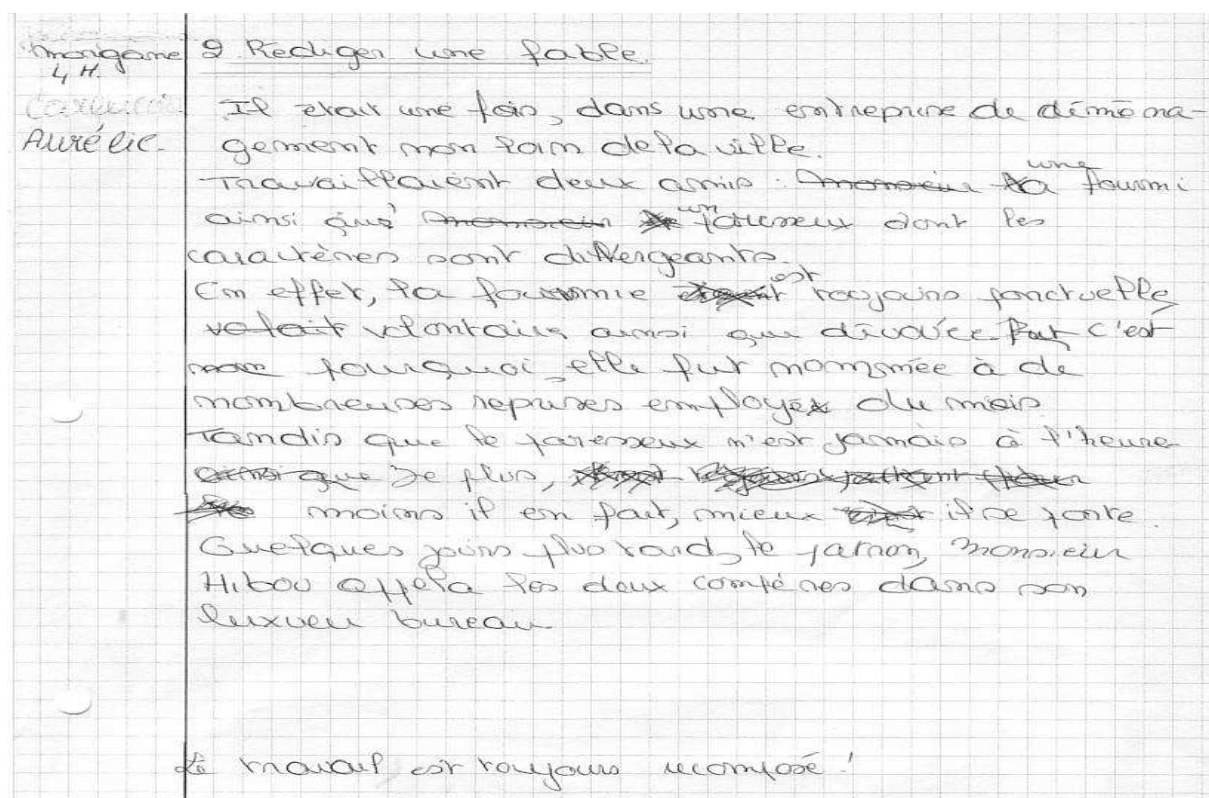 Morigane
4 H.
Aurélie.
2. Rédiger une fable.
Il était une fois, dans une entreprise de déména-
gement non loin de la ville.
Travaillaient deux amis : monsieur la une fourmi
ainsi qu' monsieur le un paresseux dont les
caractères sont divergeants.
En effet, la fourmie est toujours ponctuelle,
volait volontaire ainsi que dévouée fut c'est
pourquoi, elle fut nommée à de
nombreuses reprises employée du mois.
Tandis que le paresseux n'est jamais à l'heure
ainsi que De plus,
moins il en fait, mieux il se porte.
Quelques jours plus tard, le patron, monsieur
Hibou appela les deux compères dans son
luxueu bureau.
Le travail est toujours recomposé !